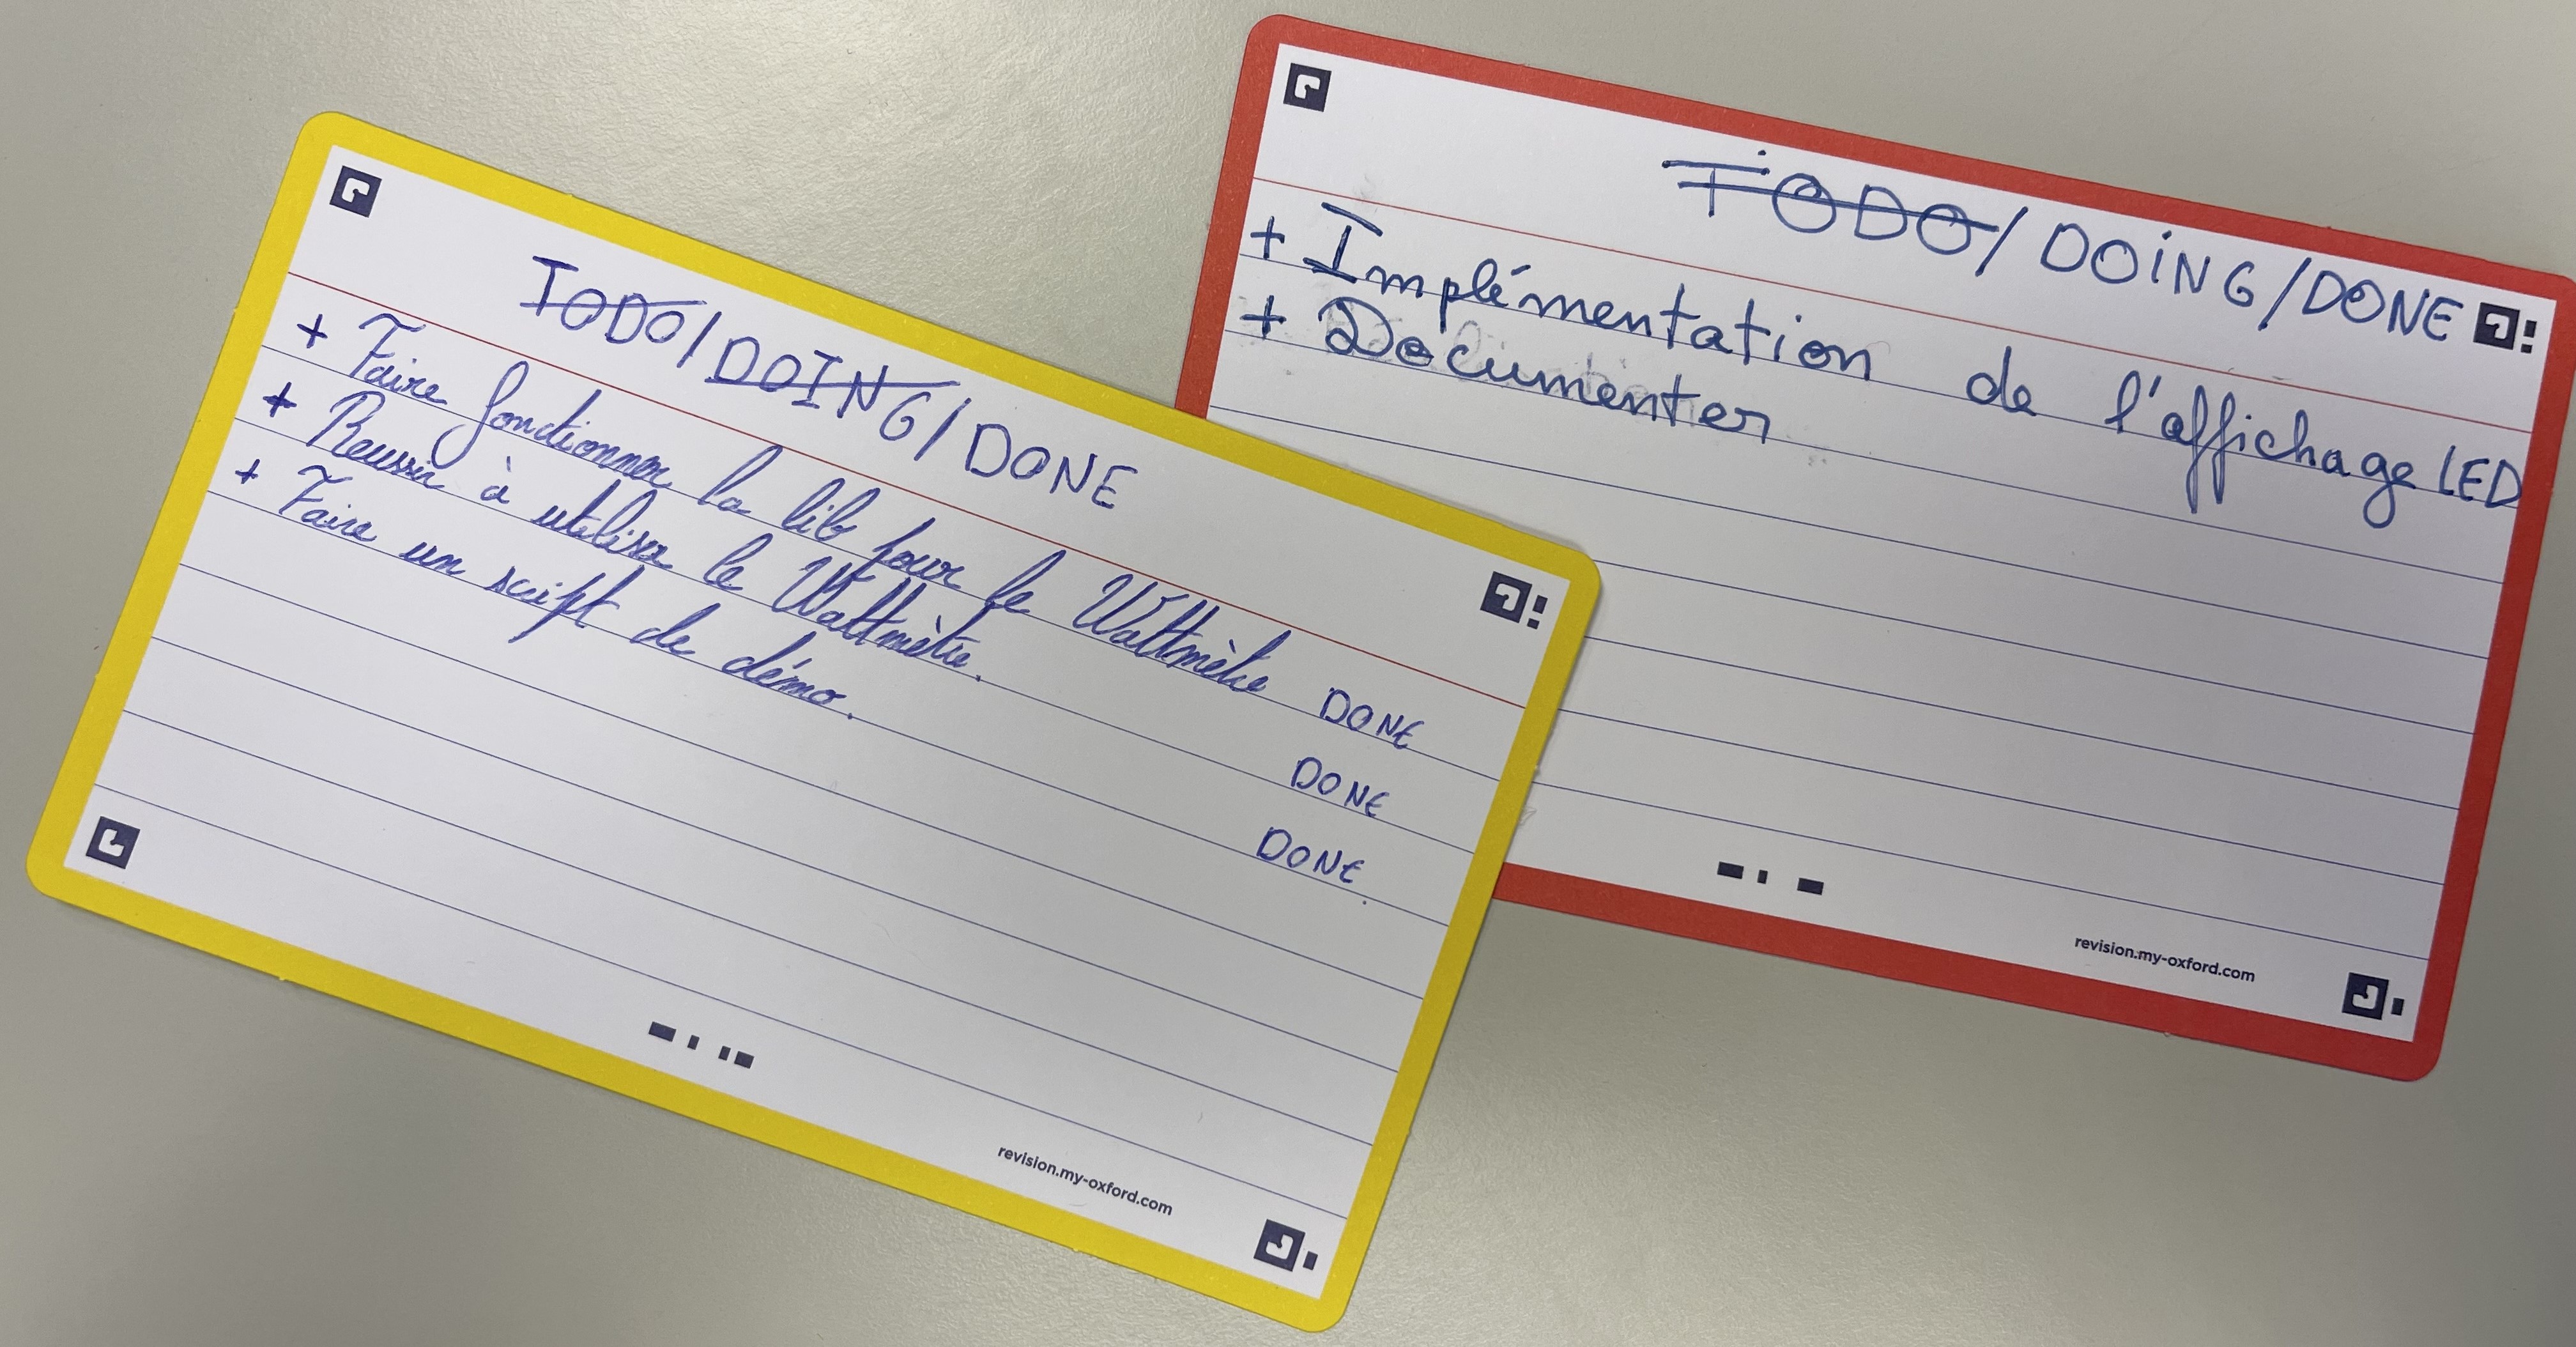 TODO/DOING/DONE
+ Faire fonctionner la lib pour le Wattmètre DONE
+ Reussir à utiliser le Wattmètre. DONE
+ Faire un script de démo. DONE
revision.my-oxford.com
TODO/DOING/DONE
+ Implémentation de l'affichage LED
+ Documenter
revision.my-oxford.com